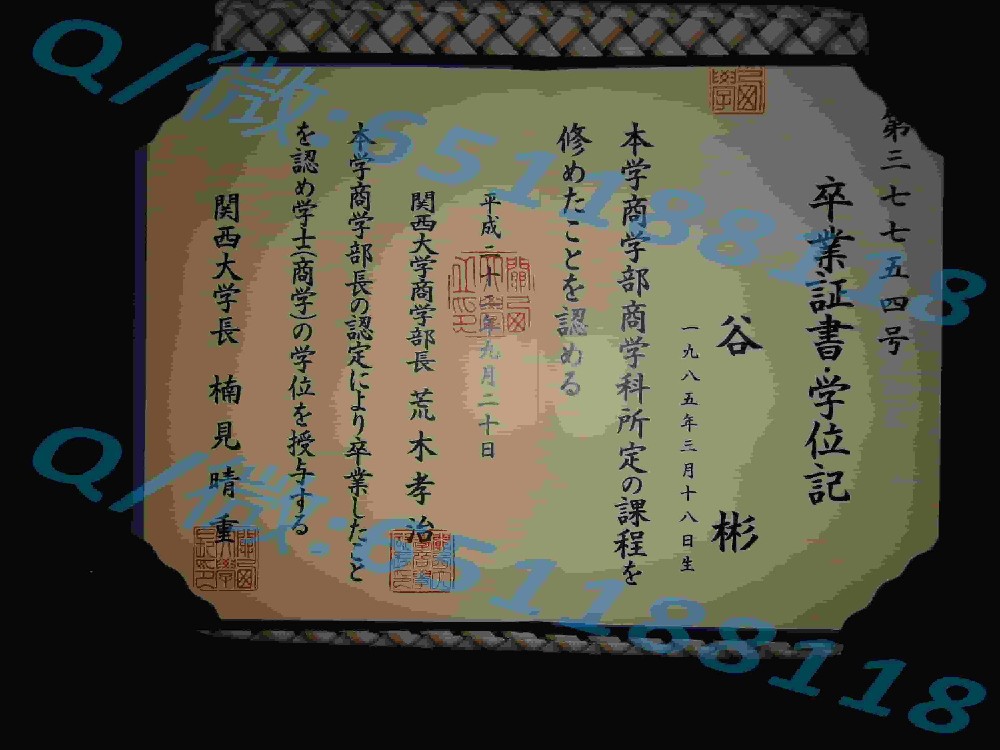 第三七七五四号
卒業証書·学位記
谷彬
一九八五年三月十八日生
本学商学部商学科所定の課程を
修めたことを認める
平成二十 年九月二十日
関西大学商学部長 荒木孝治
本学商学部長の認定により卒業したこと
を認め学士(商学)の学位を授与する
関西大学長 楠見晴重
Q/微:651188118
Q/微:651188118